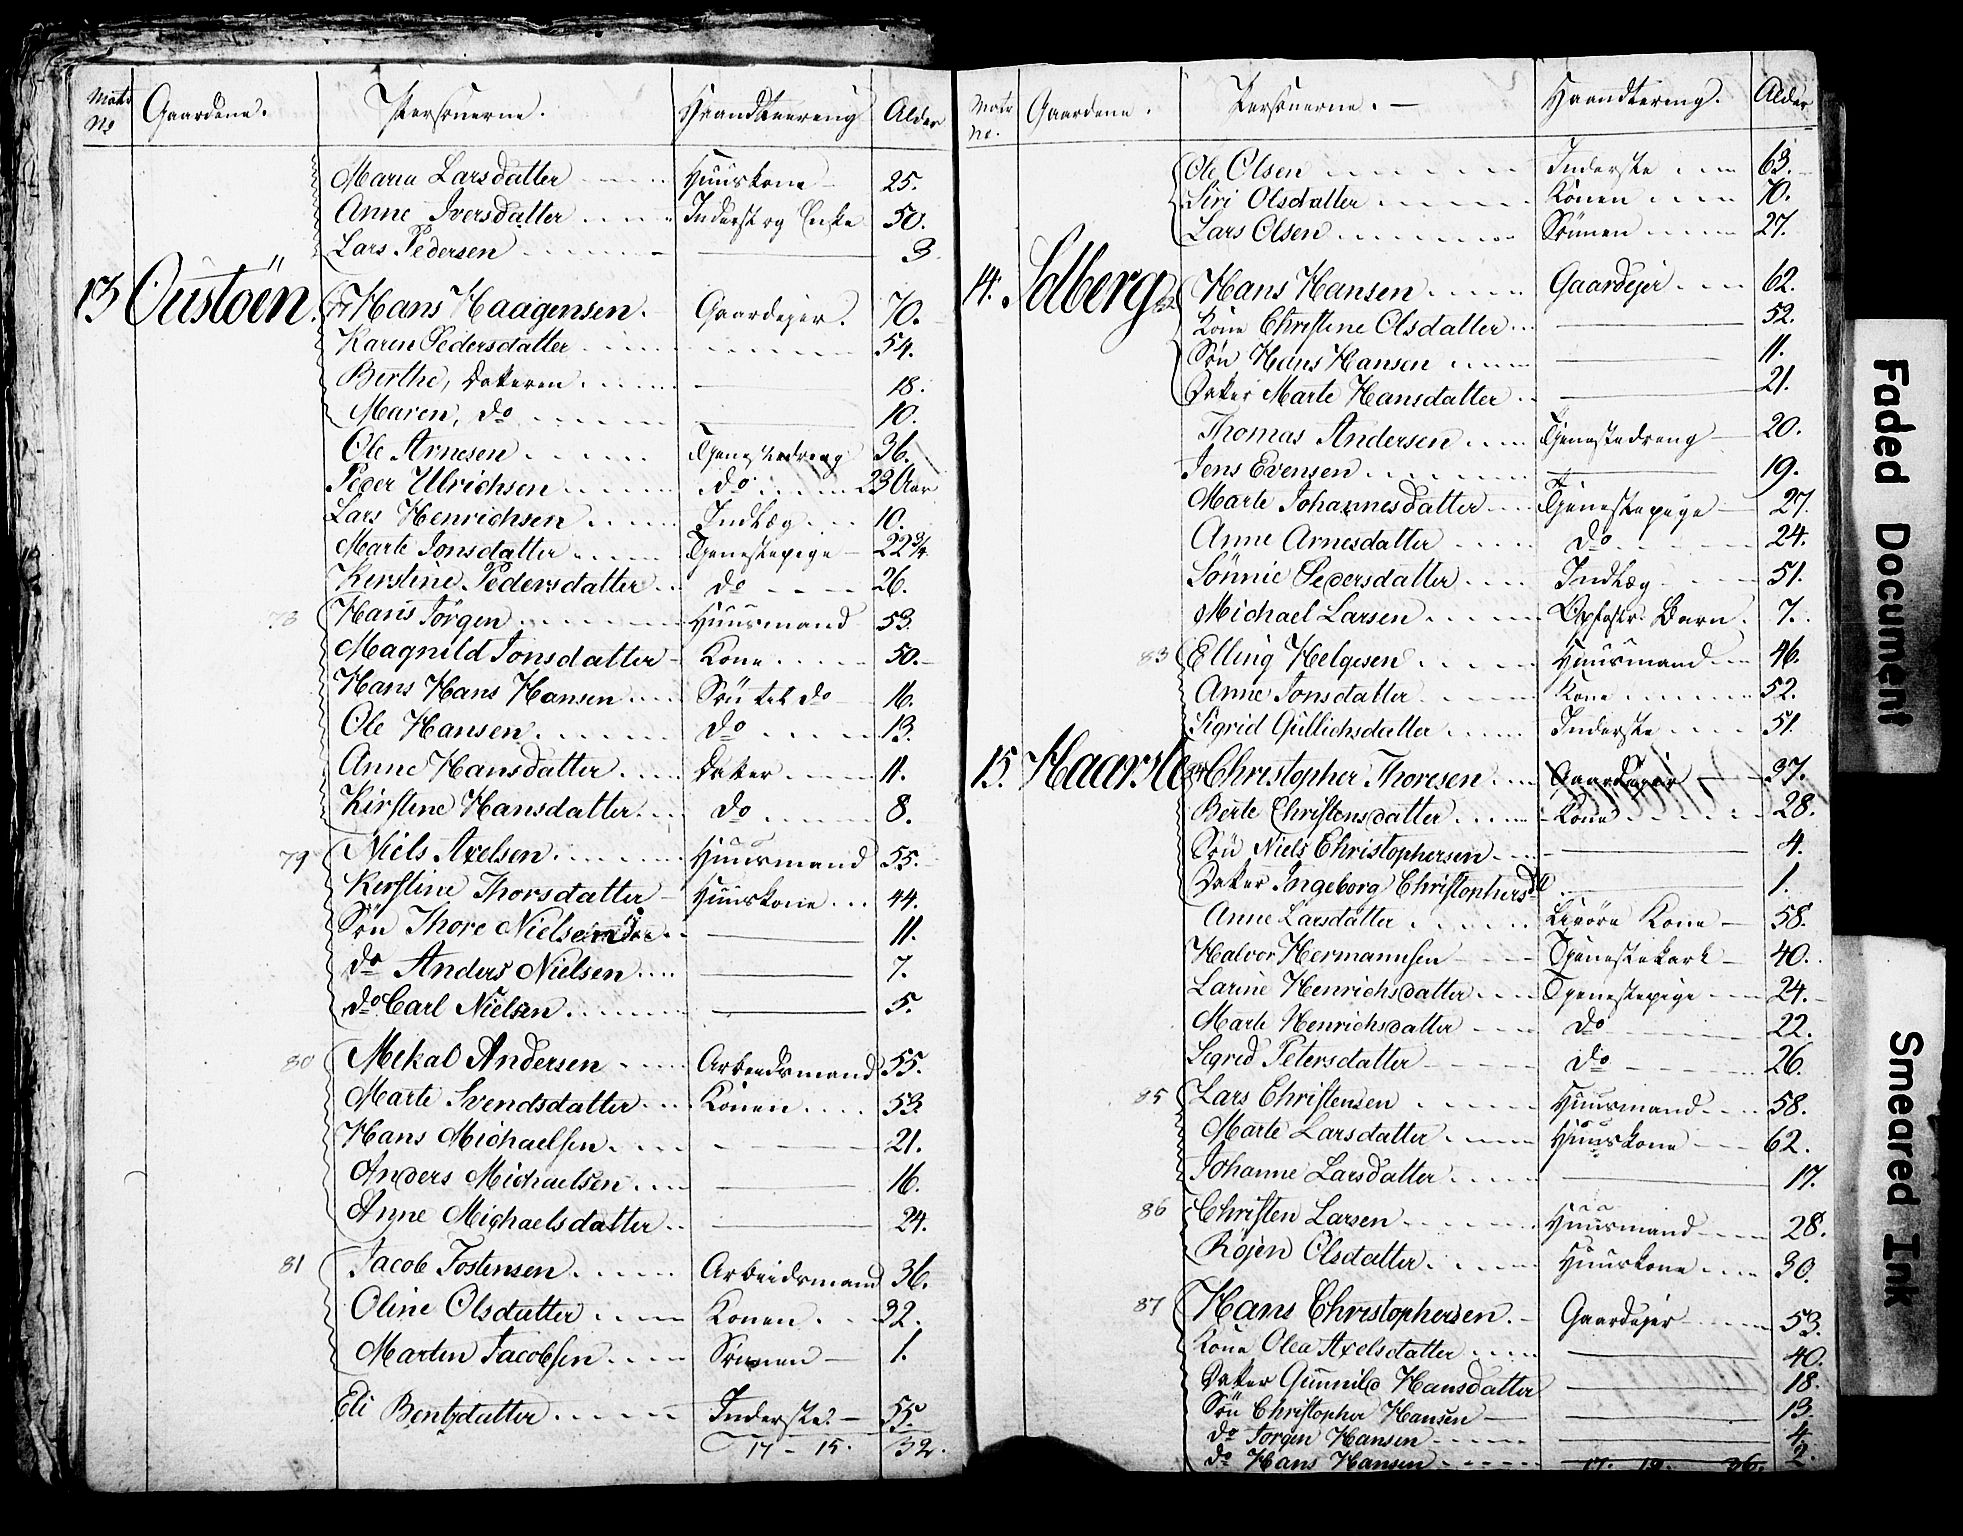 Matr No Gaardene. Personerne. Haandteering Alder
Maria Larsdatter Huuskone 25.
Anne Iversdatter Inderst og Enke 50.
Lars Pedersen 3
13 Oustöen. Hans Haagensen. Gaardejer. 70.
Karen Pedersdatter 54.
Berthe, Datteren 18.
Maren, do 10.
Ole Arnesen Tjenestedreng 36.
Peder Ulrichsen do 23 Aar
Lars Henrichsen Indlæg 10.
Marte Jonsdatter Tjenestepige 22 3/4
Kerstine Pedersdatter do 26.
78 Hans Jörgen Huusmand 53
Magnild Jonsdatter Kone 50.
Hans Hans Hansen Sön til do 16.
Ole Hansen do 13.
Anne Hansdatter Datter 11.
Kirstine Hansdatter do 8.
79 Niels Axelsen Huusmand 55.
Kerstine Thorsdatter Huuskone 44.
Sön Thore Nielsen 11.
do Anders Nielsen 7.
do Carl Nielsen 5.
80 Mekal Andersen Arbeidsmand 55.
Marte Svendsdatter Konen 53.
Hans Michaelsen 21.
Anders Michaelsen 16.
Anne Michaelsdatter 24.
81 Jacob Tostensen Arbeidsmand 36.
Oline Olsdatter Konen 32.
Marten Jacobsen Sönnen 1.
Eli Bentzdatter Inderste 55.
17 - 15. 32.
Matr No. Gaardene. Personerne. Haandtering. Alder
Ole Olsen Inderste 63.
Siri Olsdatter Konen 70.
Lars Olsen Sönnen 27.
14. Solberg 82 Hans Hansen Gaardejer 62.
Kone Christine Olsdatter 52.
Sön Hans Hansen 11.
Datter Marte Hansdatter 21.
Thomas Andersen Tjenestedreng 20.
Jens Evensen 19.
Marte Johannesdatter Tjenestepige 27.
Anne Arnesdatter do 24.
Sönnie Pedersdatter Indlæg 51.
Michael Larsen Opfostr. Barn. 7.
83 Elling Helgesen Huusmand 46.
Anne Jonsdatter Kone 52.
Sigrid Gullichsdatter Inderste 51.
15. Haarste 84 Christopher Thoresen Gaardejer 37.
Berte Christensdatter Kone 28.
Sön Niels Christophersen 4.
Datter Ingeborg Christophersd 1.
Anne Larsdatter Livöre Kone 58.
Halvor Hermansen Tjenestekarl 40.
Larine Henrichsdatter Tjenestepige 24.
Marte Henrichsdatter do 22.
Sigred Petersdatter do 26.
85 Lars Christensen Huusmand 58.
Marte Larsdatter Huuskone 62.
Johanne Larsdatter 17.
86 Christen Larsen Huusmand 28.
Rojen Olsdatter Huuskone 30.
87 Hans Christophersen Gaardejer 53.
Kone Olea Axelsdatter 40.
Datter Gunnild Hansdatter 18.
Sön Christopher Hansen 13.
do Jorgen Hansen 4.
do Hans Hansen 2.
17. 19. 36.
Faded Document
Smeared Ink